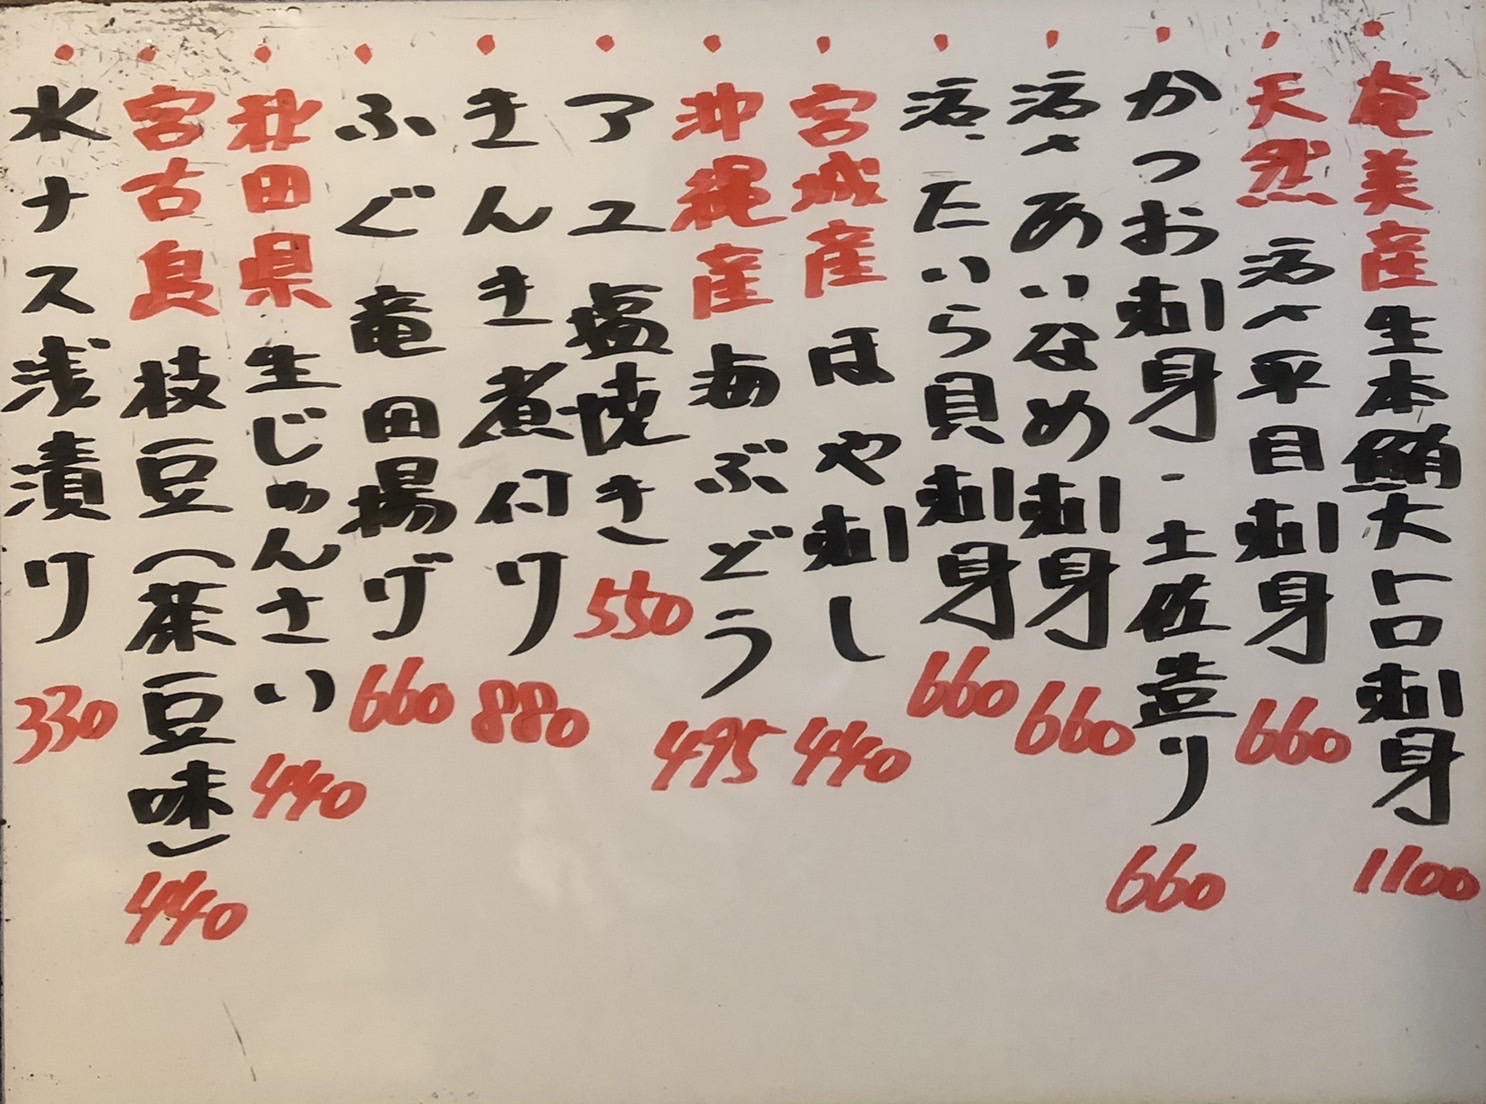 奄美産生本鮪大トロ刺身 1100
天然 活〆平目刺身 660
かつお刺身・土佐造り 660
活〆あいなめ刺身 660
活〆たいら貝刺身 660
宮城産 ほや刺し 440
沖縄産 海ぶどう 495
アユ 塩焼き 550
きんき煮付け 880
ふぐ竜田揚げ 660
秋田県 生じゅんさい 440
宮古島 枝豆(茶豆味) 440
水ナス浅漬け 330